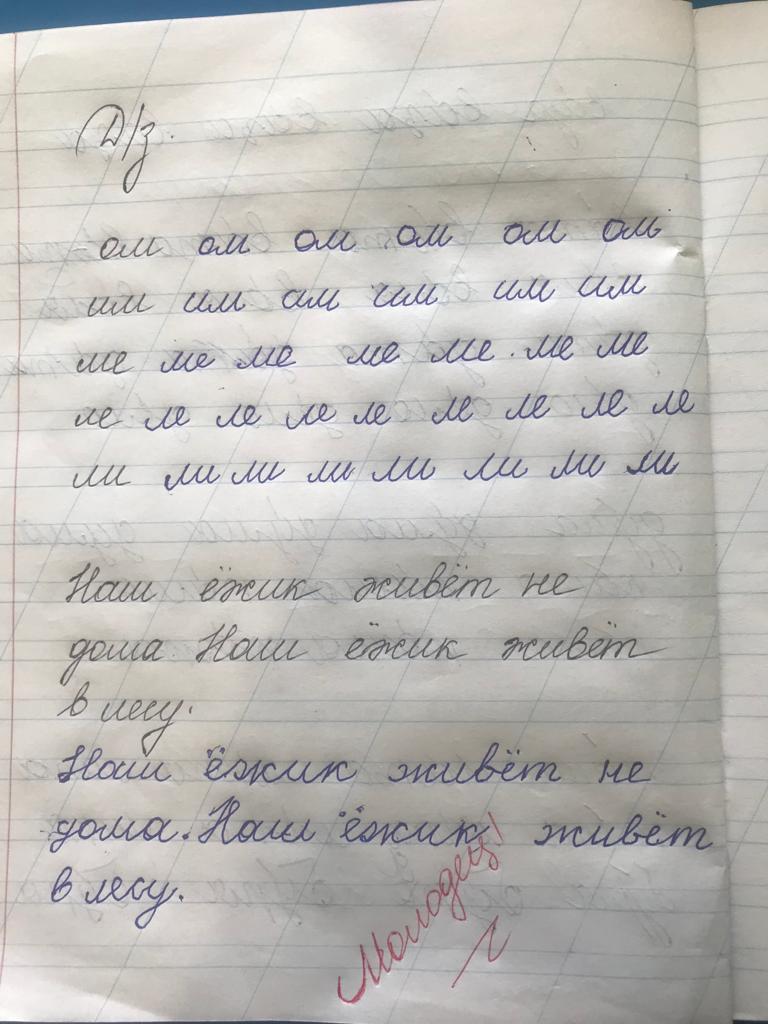 Д/з.
ом ом ом ом ом ом
им им им им им им
ме ме ме ме ме ме ме
ле ле ле ле ле ле ле ле ле
ли ли ли ли ли ли ли ли
Наш ёжик живёт не
дома Наш ёжик живёт
в лесу.
Наш ёжик живёт не
дома. Наш ёжик живёт
в лесу.
Молодец!